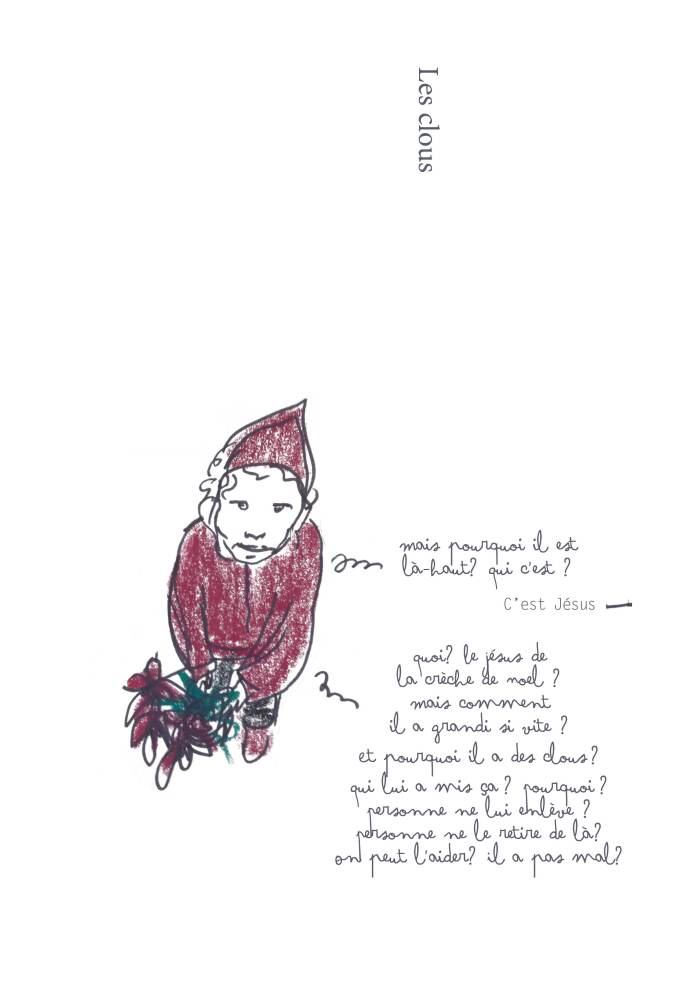 Les clous
mais pourquoi il est
là-haut? qui c'est ?
C'est Jésus
quoi? le jésus de
la crèche de noel ?
mais comment
il a grandi si vite ?
et pourquoi il a des clous?
qui lui a mis ça? pourquoi?
personne ne lui enlève ?
personne ne le retire de là?
on peut l'aider? il a pas mal?